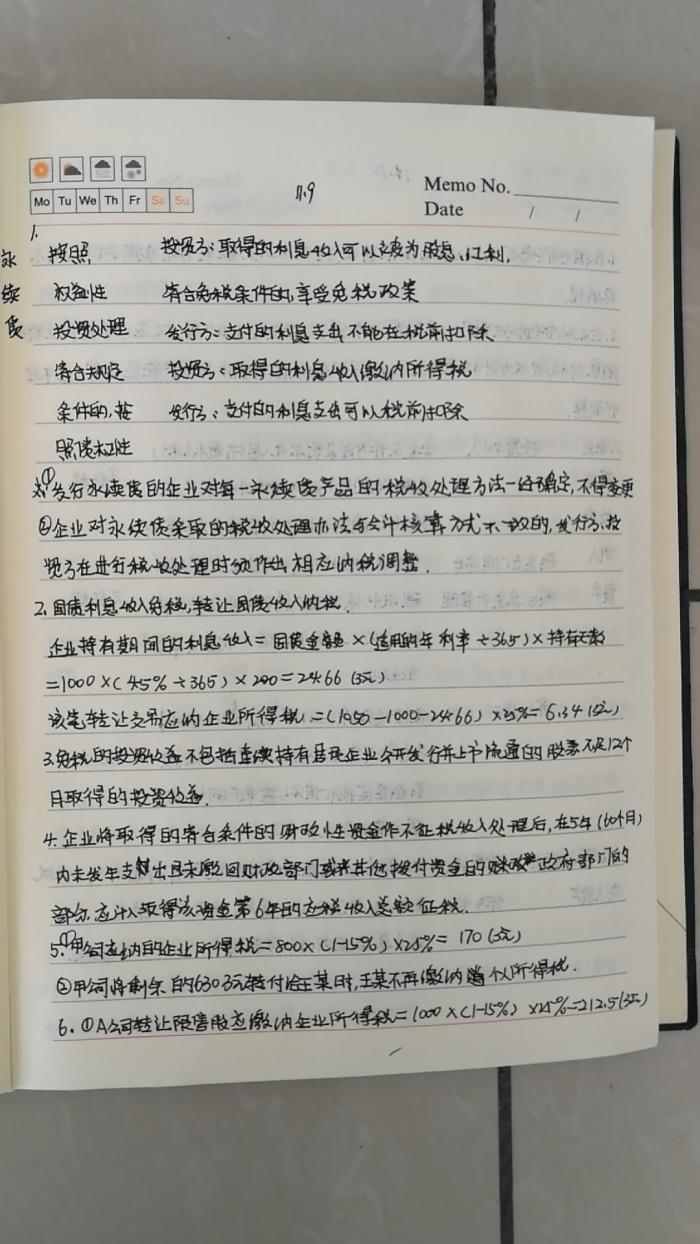 Mo Tu We Th Fr Sa Su
11.9
Memo No.
Date / /
1.
永续债
按照 投资方：取得的利息收入可以定为股息、红利，
权益性 符合免税条件的，享受免税政策
投资处理 发行方：支付的利息支出不能在税前扣除
符合规定 投资方：取得的利息收入缴纳所得税
条件的，按 发行方：支付的利息支出可以税前扣除
照债权性
①发行永续债的企业对每一永续债产品的税收处理方法一经确定，不得变更
②企业对永续债采取的税收处理办法与会计核算方式不一致的，发行方、投
资方在进行税收处理时须作出相应纳税调整．
2．国债利息收入免税，转让国债收入纳税．
企业持有期间的利息收入＝国债金额×(适用的年利率÷365)×持有天数
=1000×(4.5%÷365)×200=24.66(万元)
该笔转让交易应纳企业所得税=(1050-1000-24.66)×25%=6.34(万元)
3.免税的投资收益不包括连续持有居民企业公开发行并上市流通的股票不足12个
月取得的投资收益．
4.企业将取得的符合条件的财政性资金作不征税收入处理后，在5年(60个月)
内未发生支出且未缴回财政部门或其他拨付资金的政府部门的
部分，应计入取得该资金第6年的应税收入总额征税．
5.①甲公司应纳的企业所得税=800×(1-15%)×25%=170(万元)
②甲公司将剩余的630万元转付给王某时，王某不再缴纳个人所得税．
6.①A公司转让限售股应缴纳企业所得税=1000×(1-15%)×25%=212.5(万元)